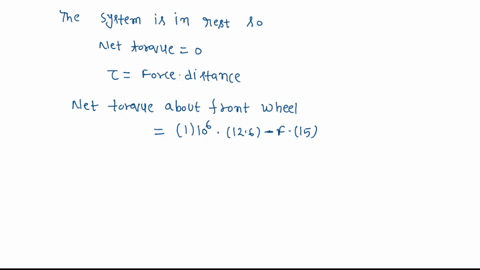 The system is in rest so
Net torque = 0
τ = Force · distance
Net torque about front wheel
= (1)10⁶ · (12.6) - F · (15)